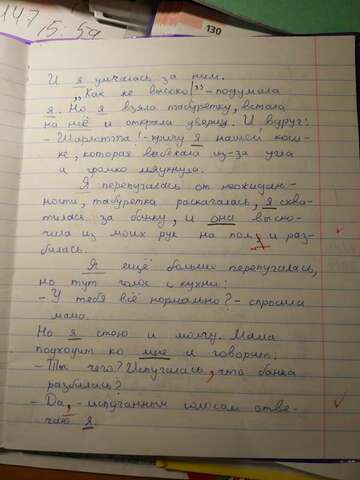 147
15:59
130
И я умчалась за ним.
„Как же высоко!” – подумала
я. Но я взяла табуретку, встала
на неё и открыла дверцу. И вдруг:
– Шарлотта! – кричу я нашей кош-
ке, которая выбежала из-за угла
и громко мяукнула.
Я перепугалась от неожидан-
ности, табуретка раскачалась, я схва-
тилась за банку, и она выско-
чила из моих рук на пол, и раз-
билась.
Я ещё больше перепугалась,
но тут голос с кухни:
– У тебя всё нормально? – спросила
мама.
Но я стою и молчу. Мама
подходит ко мне и говорит:
– Ты чего? Испугалась, что банка
разбилась?
– Да, – испуганным голосом отве-
чаю я.